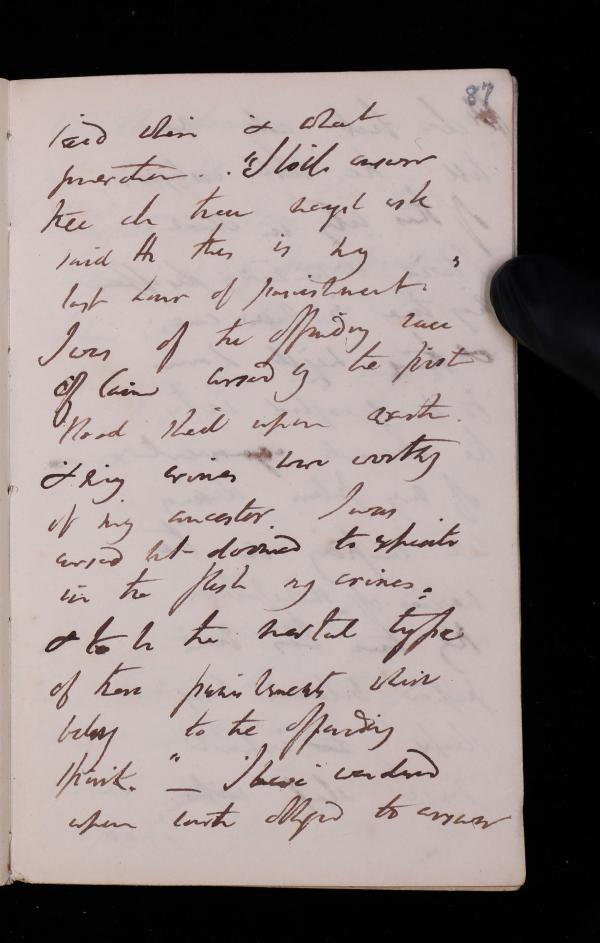 87
said & what
. "I will answer
thee all thou mayst ask
said He this is my
last hour of punishment. "
I was of the offending race
of Cain cursed by the first
blood shed upon earth.
& my crimes were worthy
of my ancestor. I was
cursed but doomed to expiate
in the flesh my crimes.
& to be the mortal type
of those punishments which
belong to the offending
spirit. " _ I have wandered
upon earth obliged to answer